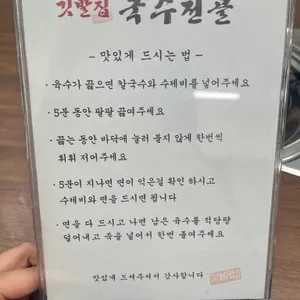 깃발집 국수전골
- 맛있게 드시는 법 -
· 육수가 끓으면 칼국수와 수제비를 넣어주세요
· 5분 동안 팔팔 끓여주세요
· 끓는 동안 바닥에 눌러 붙지 않게 한번씩
휘휘 저어주세요
· 5분이 지나면 면이 익은걸 확인 하시고
수제비와 면을 드시면 됩니다
· 면을 다 드시고 나면 남은 육수를 적당량
덜어내고 죽을 넣어서 한번 졸여주세요
맛있게 드셔주셔서 감사합니다